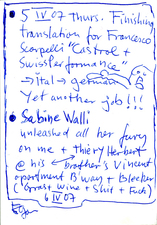 5 IV 07 Thurs. Finishing
translation for Francesco
Scarpelli "Castrol +
Swissperformance"
→ ital → german
Yet another job!!!
• Sabine Walli
unleashed all her fury
on me + thiery Herbert
@ his brother's Vincent
apartment B'way + Bleeker
(Grass + wine + Shit + Fuck)
6 IV 07